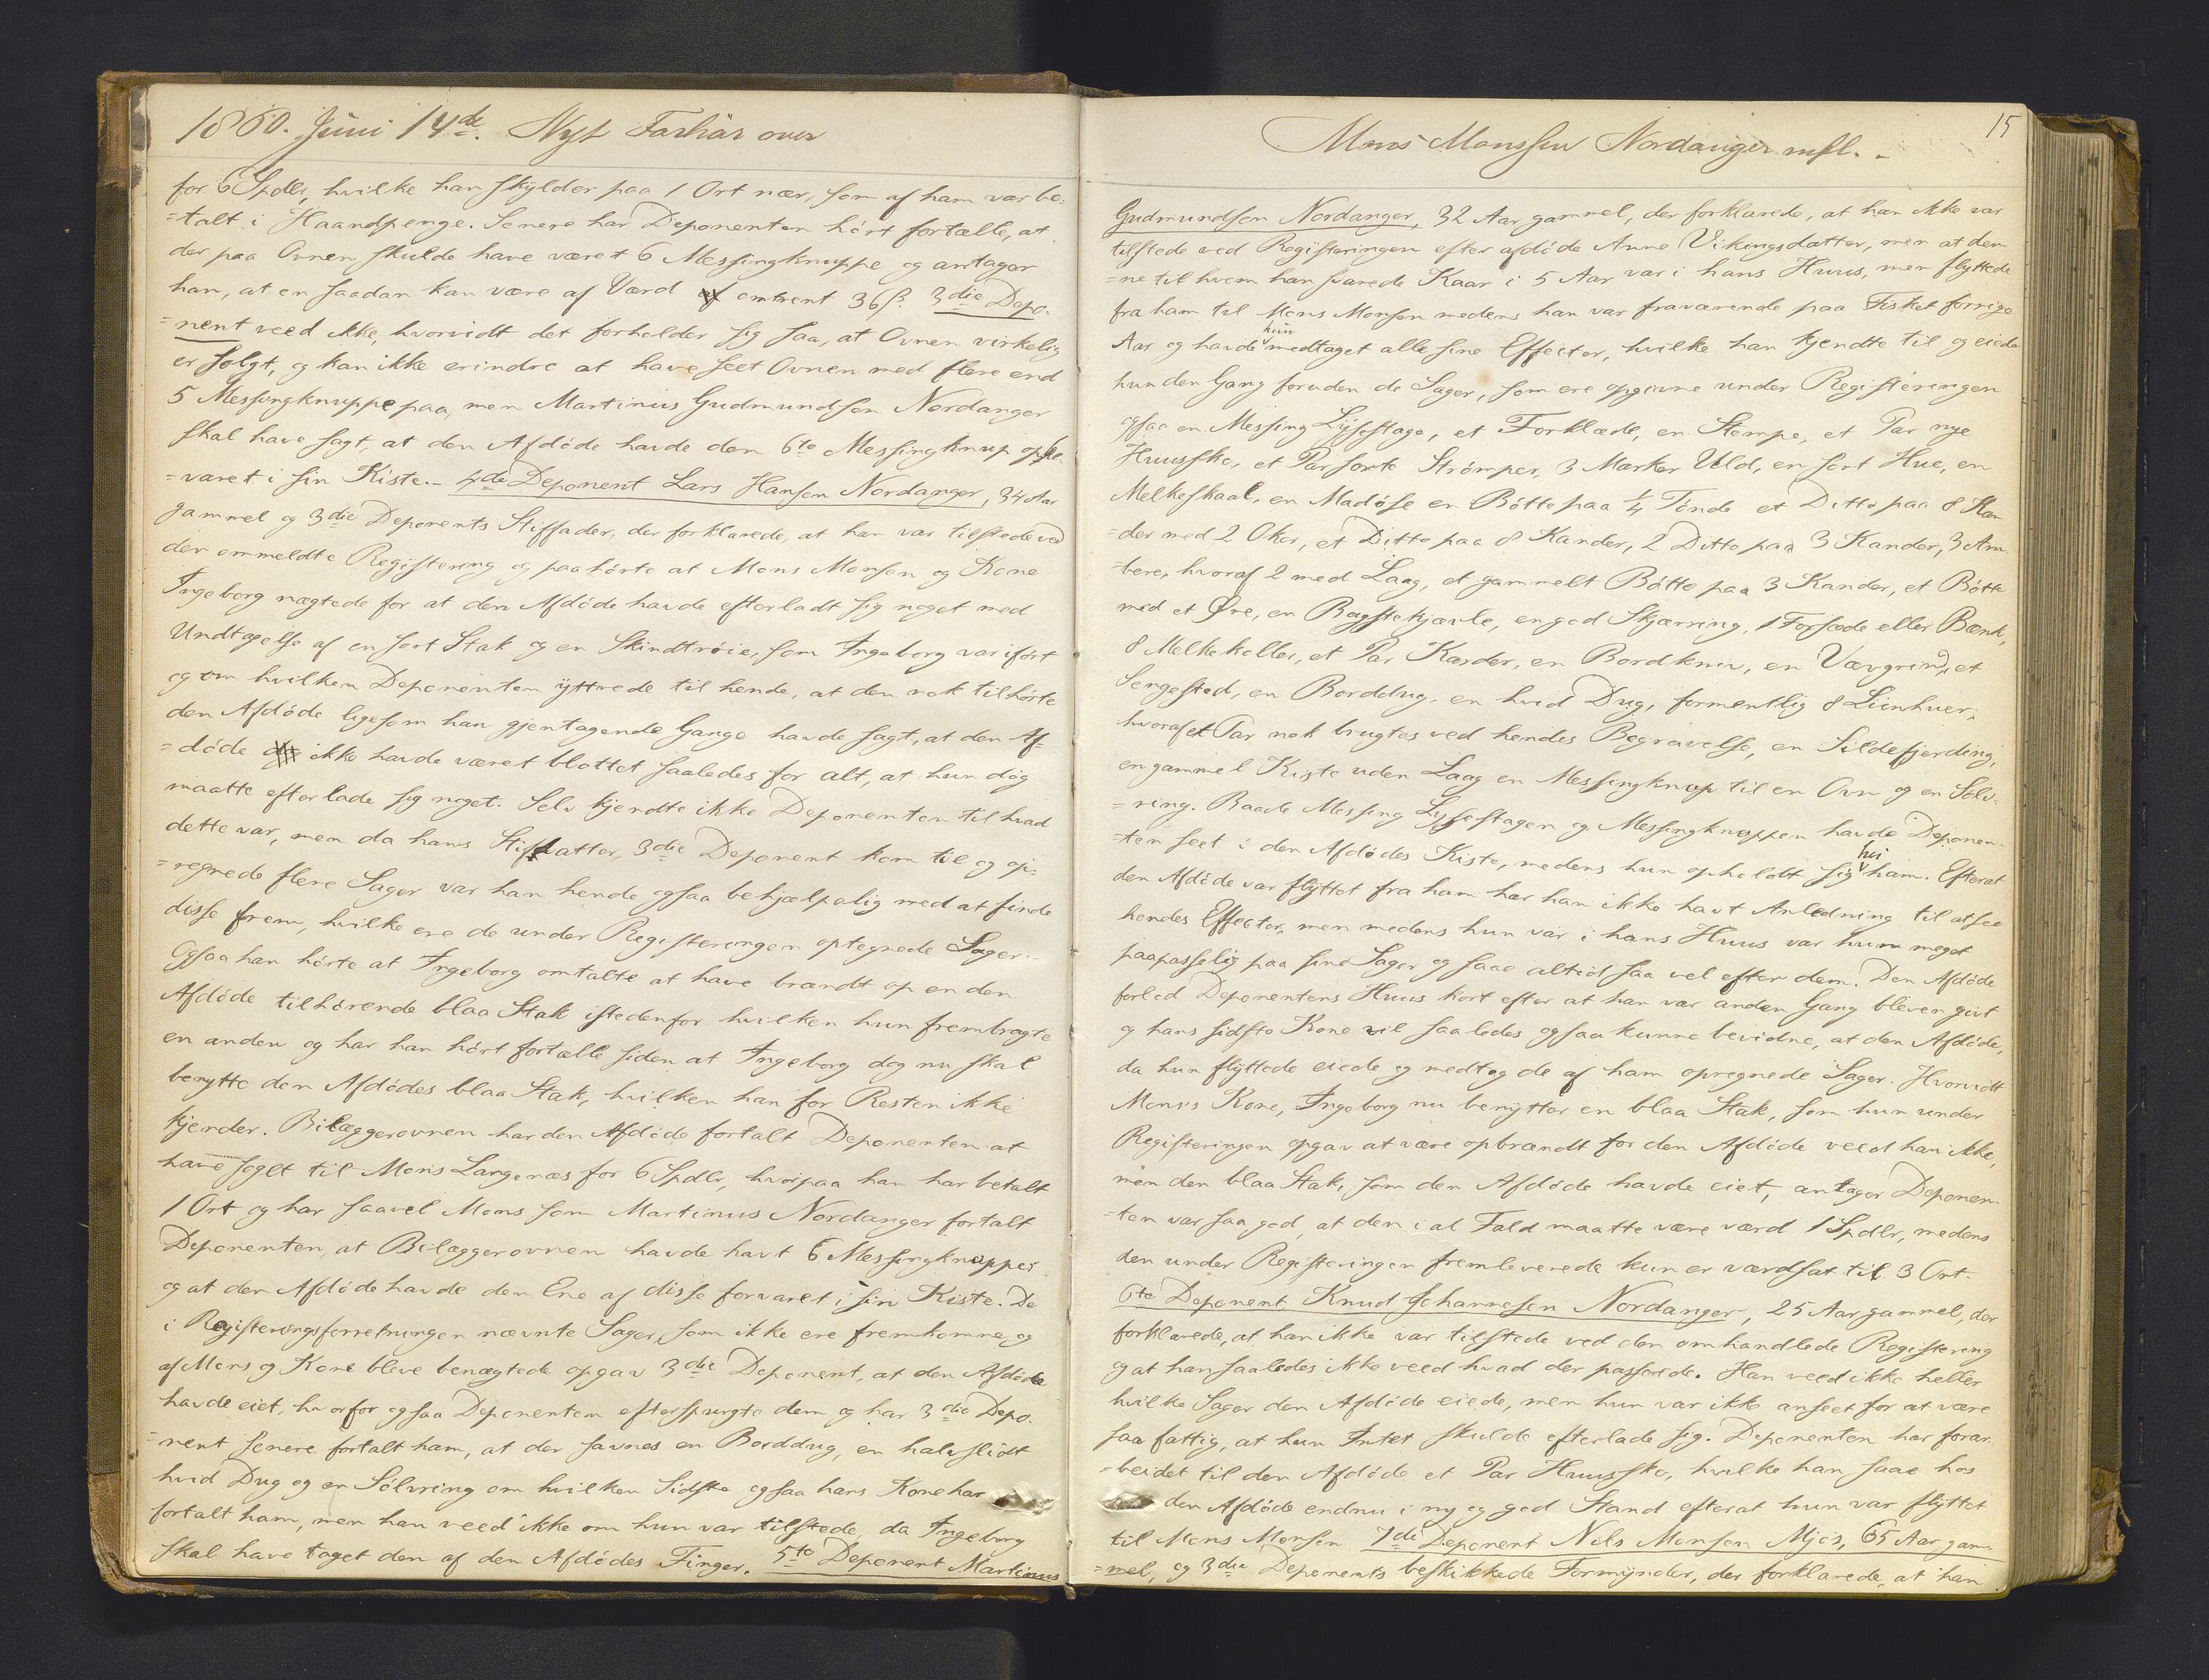 1860. Juni 14de. Nyt Forhör over
for 6 Spdlr, hvilke han skylder paa 1 Ort nær, som af ham var be=
=talt i Haandpenge. Senere har Deponenten hört fortælle, at
der paa Ovnen skulde have været 6 Messingknuppe og antager
han, at en saadan kan være af Værd omtrent 36 ß. 3die Depo-
=nent veed ikke, hvorvidt det forholder sig saa, at Ovnen virkelig
er solgt, og kan ikke erindre at have seet Ovnen med flere end
5 Messingknuppe paa, men Martinus Gudmundsen Nordanger
skal have sagt, at den Afdöde havde den 6te Messingknup opbe-
=varet i sin Kiste. - 4de Deponent Lars Hansen Nordanger, 34 Aar
gammel og 3die Deponents Stiffader, der forklarede, at han var tilstede ved
den ommeldte Registering og paahörte at Mons Monsen og Kone
Ingeborg nægtede for at den Afdöde havde efterladt sig noget med
Undtagelse af en sort Stak og en Skindtröie, som Ingeborg var ifört
og om hvilken Deponenten yttrede til hende, at den nok tilhörte
den Afdöde ligesom han gjentagende Gange havde sagt, at den Af=
=döde ikke havde været blottet saaledes for alt, at hun dog
maatte efterlade sig noget. Selv kjendte ikke Deponenten til hvad
dette var, men da hans Stifdatter, 3die Deponent kom til og op=
=regnede flere Sager var han hende ogsaa behjælpelig med at finde
disse frem, hvilke ere de under Registeringen optegnede Sager. -
Ogsaa han hörte at Ingeborg omtalte at have brændt op en den
Afdöde tilhörende blaa Stak istedenfor hvilken hun frembragte
en anden og har han hört fortælle siden at Ingeborg dog nu skal
benytte den Afdödes blaa Stak, hvilken han for Resten ikke
kjender. Bilæggerovnen har den Afdöde fortalt Deponenten at
have solgt til Mons Langenæs for 6 Spdlr, hvorpaa han har betalt
1 Ort og har saavel Mons som Martinus Nordanger fortalt
Deponenten, at Bilæggerovnen havde havt 6 Messingknupper
og at den Afdöde havde den Ene af disse forvaret i sin Kiste. De
i Registeringsforretningen nævnte Sager, som ikke ere fremkomne og
af Mons og Kone bleve benægtede opgav 3die Deponent, at den Afdöde
havde eiet, hvorfor ogsaa Deponenten efterspurgte dem og har 3die Depo-
=nent senere fortalt ham, at der savnes en Borddug, en halvslidt
hvid Dug og en Sölvring om hvilken Sidste ogsaa hans Kone har
fortalt ham, men han veed ikke om hun var tilstede, da Ingeborg
skal have taget den af den Afdödes Finger. 5te Deponent Martinus
15
Mons Monssen Nordanger mfl. -
Gudmundsen Nordanger, 32 Aar gammel, der forklarede, at han ikke var
tilstede ved Registeringen efter afdöde Anne Vikingsdatter, men at den-
=ne til hvem han svarede Kaar i 5 Aar var i hans Huus, men flyttede
fra ham til Mons Monsen medens han var fraværende paa Fisket forrige
Aar og havde hun medtaget alle sine Effecter, hvilke han kjendte til og eiede
hun den Gang foruden de Sager, som ere opgivne under Registeringen
ogsaa en Messing Lysestage, et Forklæde, en Stempe, et Par nye
Huussko, et Par sorte Strömper, 3 Marker Uld, en sort Hue, en
Melkeskaal, en Madöse en Bötte paa 1/4 Tönde et Ditto paa 8 Kan
=der med 2 Oker, et Ditto paa 8 Kander, 2 Ditto paa 3 Kander, 3 Am-
=bere, hvoraf 2 med Laag, et gammelt Bötte paa 3 Kander, et Bötte
med et Öre, en Bagstekjævle, en god Skjærring, 1 Forsæde eller Bænk,
8 Melkekoller, et Par Karder, en Bordkniv, en Vævgrind, et
Sengested, en Borddug, en hvid Dug, formentlig 8 Liinhuer,
hvoraf et Par nok brugtes ved hendes Begravelse, en Sildefjerding,
en gammel Kiste uden Laag en Messingknop til en Ovn og en Sölv-
=ring. Baade Messing Lysestagen og Messingknoppen havde Deponen-
=ten seet i den Afdödes Kiste, medens hun opholdt sig hos ham. Efterat
den Afdöde var flyttet fra ham har han ikke havt Anledning til at see
hendes Effecter, men medens hun var i hans Huus var hun meget
paapasselig paa sine Sager og saae altid saa vel efter dem. Den Afdöde
forlod Deponentens Huus kort efter at han var anden Gang bleven givt
og hans sidste Kone vil saaledes ogsaa kunne bevidne, at den Afdöde,
da hun flyttede eiede og medtog de af ham opregnede Sager. Hvorvidt
Mons's Kone, Ingeborg nu benytter en blaa Stak, som hun under
Registeringen opgav at være opbrændt for den Afdöde veed han ikke,
men den blaa Stak, som den Afdöde havde eiet, antager Deponen-
=ten var saa god, at den i al Fald maatte være værd 1 Spdlr, medens
den under Registeringen fremleverede kun er værdsat til 3 Ort.
6te Deponent Knud Johannesen Nordanger, 25 Aar gammel, der
forklarede, at han ikke var tilstede ved den omhandlede Registering
og at han saaledes ikke veed hvad der passerede. Han veed ikke heller
hvilke Sager den Afdöde eiede, men hun var ikke anseet for at være
saa fattig, at hun Intet skulde efterlade sig. Deponenten har forar-
=beidet til den Afdöde et Par Huussko, hvilke han saae hos
den Afdöde endnu i ny og god Stand efterat hun var flyttet
til Mons Monsen. 7de Deponent Nils Monsen Mjös, 65 Aar gam-
=mel, og 3die Deponents beskikkede Formynder, der forklarede, at han